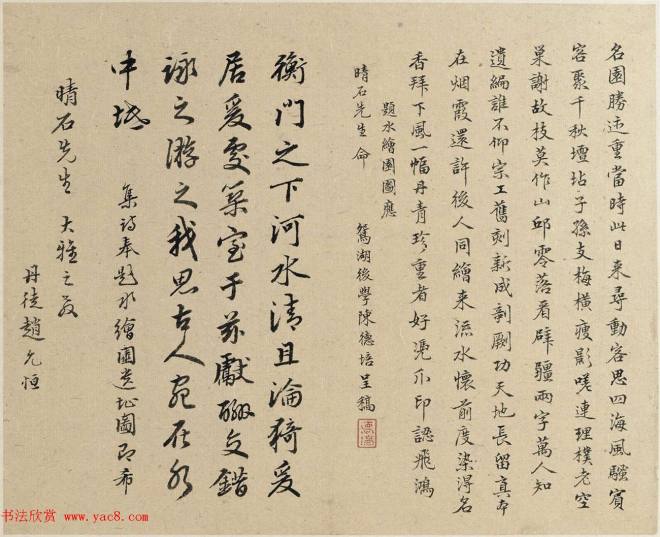 名園勝迹重當時此日来尋動客思四海風騷賓
客聚千秋壇坫子孫支梅橫瘦影嗟連理樸老空
巢謝故枝莫作山邱零落看辟疆兩字萬人知
遺編誰不仰宗工舊刻新成剞劂功天地長留真本
在烟霞還許後人同繪来流水懷前度染得名
香拜下風一幅丹青珍重者好憑爪印認飛鴻
題水繪園圖應
晴石先生命
鴛湖後學陳德培呈稿
衡門之下河水清且淪猗爰
居爰處築室于茲獻酬交錯
詠之游之我思古人宛在水
中坻
集詩奉題水繪園遺址圖即希
晴石先生大雅之政
丹徒趙允恒
书法欣赏 www.yac8.com